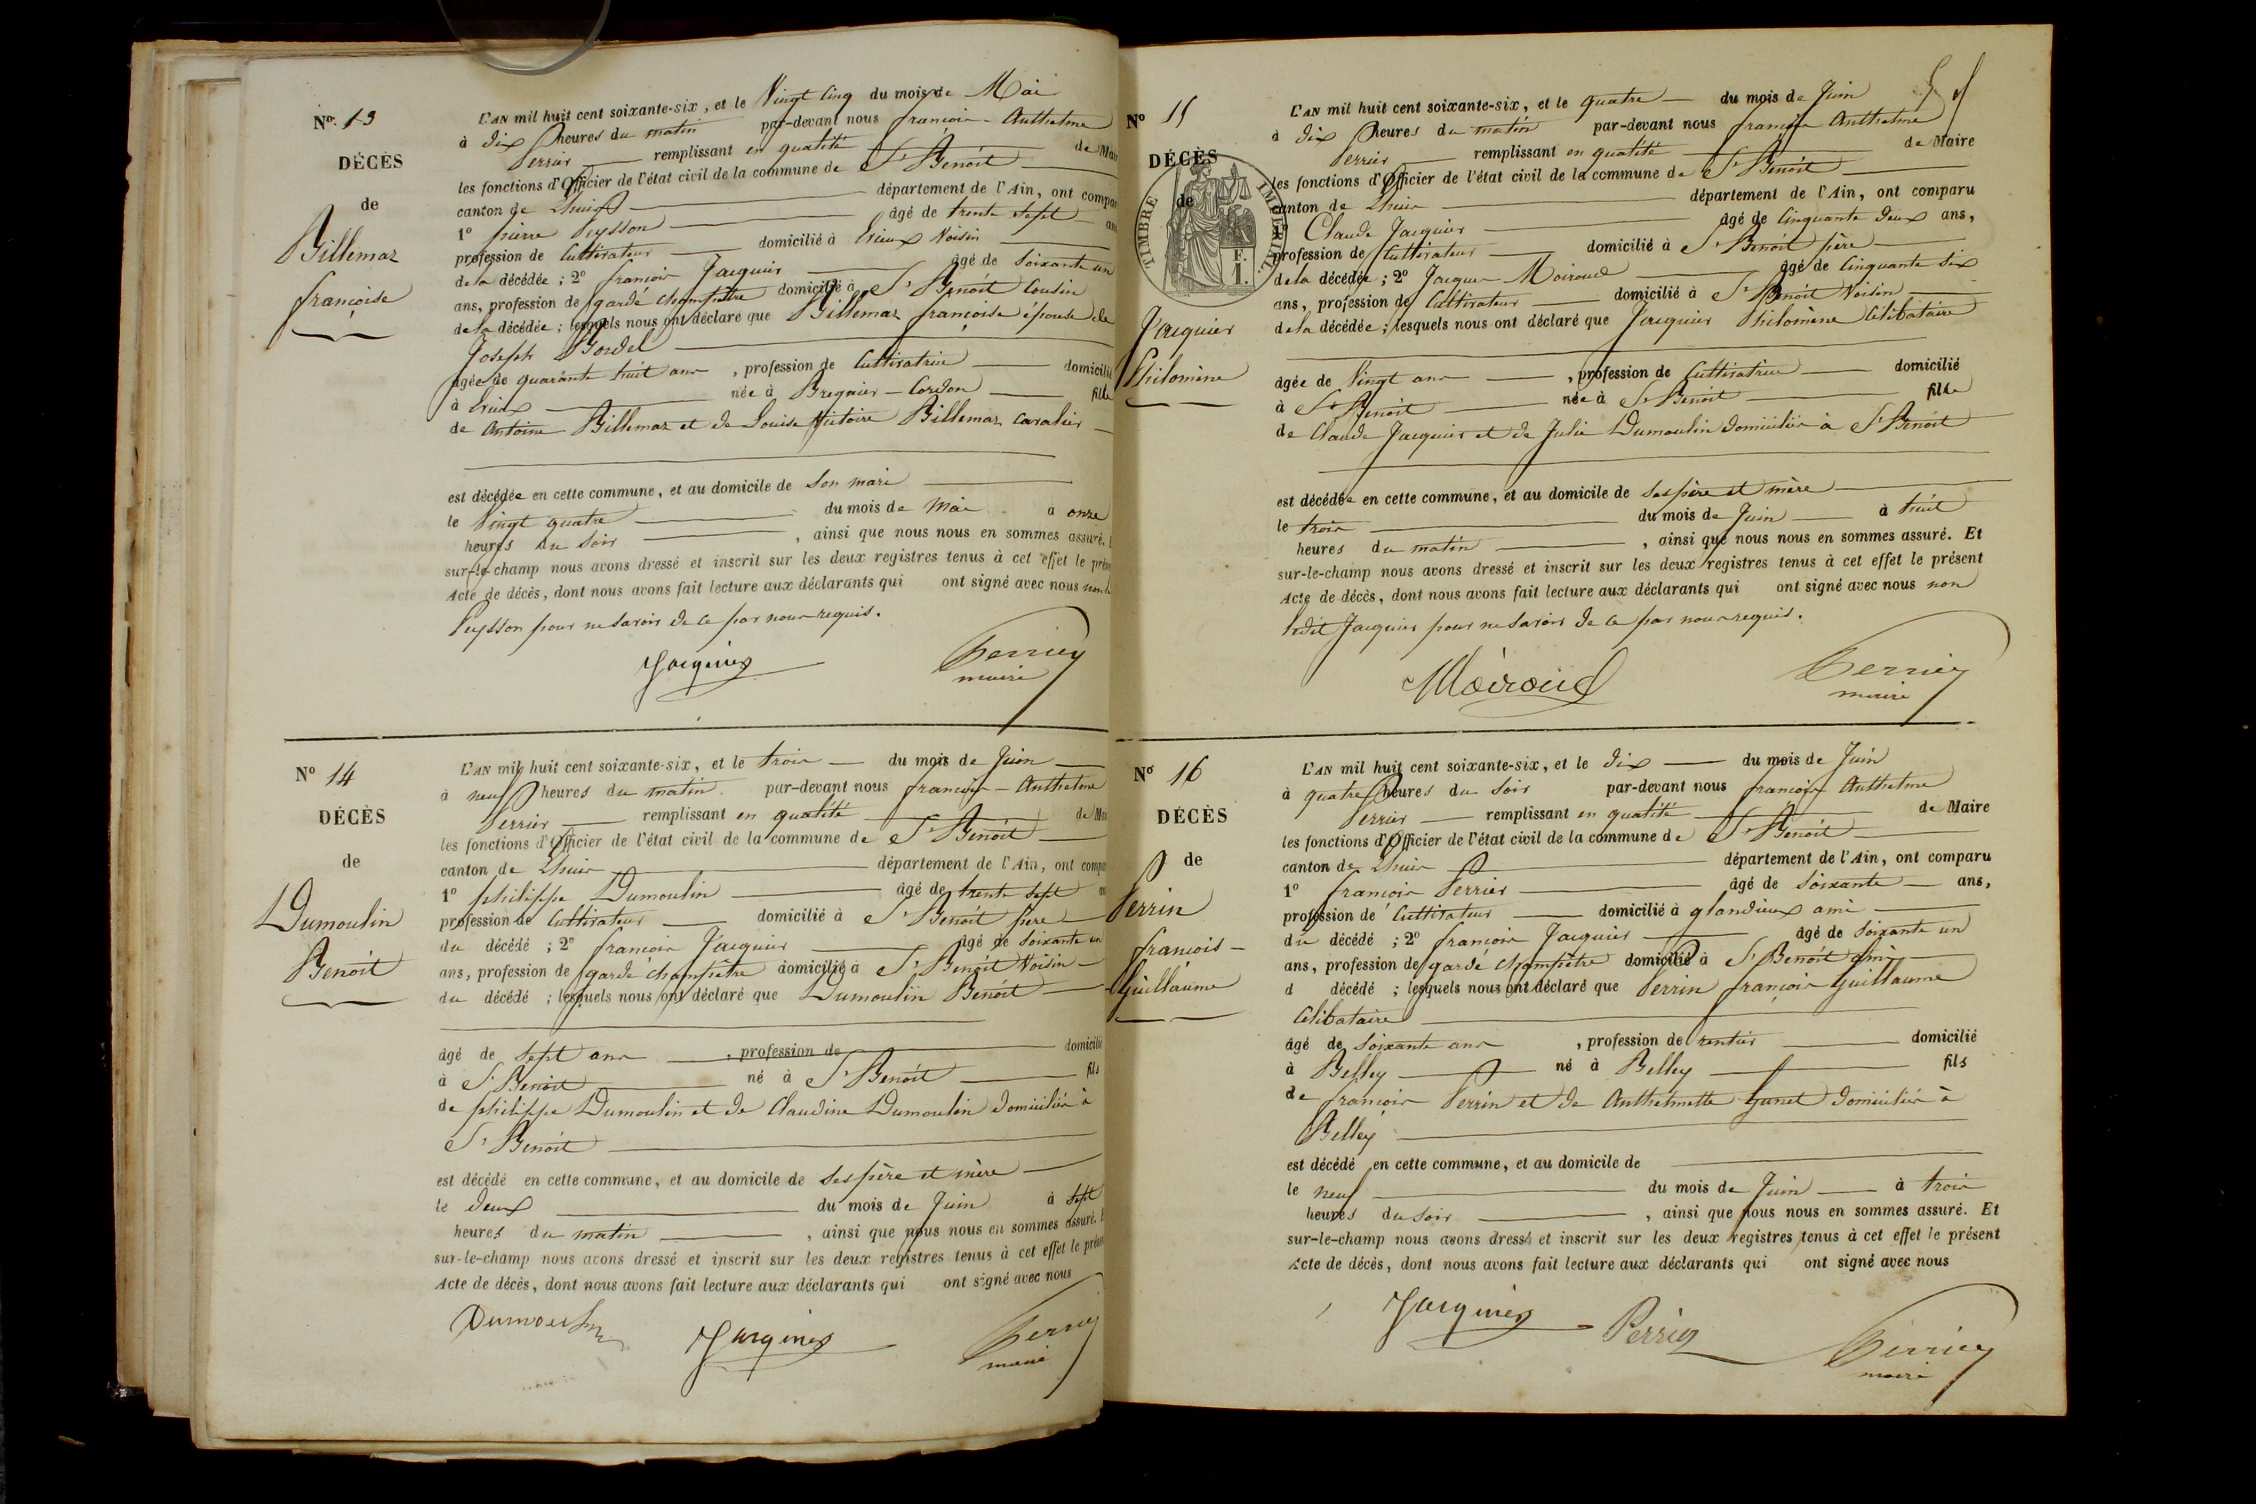 Nº 13
DÉCÈS
de
Billemaz
françoise
L'AN mil huit cent soixante-six, et le Vingt Cinq du mois de Mai
à dix heures du matin par-devant nous françois Anthelme
Perrier remplissant en qualité de Mai
les fonctions d'Officier de l'état civil de la commune de St Benoît
canton de Lhuis département de l'Ain, ont compa
1º pierre Peysson âgé de trente sept ans
profession de Cultivateur domicilié à Voisin
de la décédée ; 2º françois Jacquier âgé de Soixante un
ans, profession de garde champêtre domicilié à St Benoît Cousin
de la décédée ; lesquels nous ont déclaré que Billemaz françoise épouse de
Joseph
agée de quarante huit ans , profession de Cultivatrice domicilié
à née à Bregnier-Cordon fille
de Antoine Billemaz et de Louise Victoire Billemaz Cavalier
est décédée en cette commune, et au domicile de Son mari
le Vingt quatre du mois de Mai à onze
heures du Soir , ainsi que nous nous en sommes assuré.
sur-le-champ nous avons dressé et inscrit sur les deux registres tenus à cet effet le prése
Acte de décès, dont nous avons fait lecture aux déclarants qui ont signé avec nous non
Peysson pour ne Savoir de ce par nous requis.
Jacquier
Perrier
maire
Nº 14
DÉCÈS
de
Dumoulin
Benoît
L'AN mil huit cent soixante-six, et le trois du mois de Juin
à neuf heures du matin par-devant nous françois-Anthelme
Perrier remplissant en qualité de Mai
les fonctions d'Officier de l'état civil de la commune de St Benoît
canton de Lhuis département de l'Ain, ont compa
1º philippe Dumoulin âgé de trente Sept
profession de Cultivateur domicilié à St Benoît père
du décédé ; 2º françois Jacquier âgé de Soixante un
ans, profession de garde champêtre domicilié à St Benoît Voisin
du décédé ; lesquels nous ont déclaré que Dumoulin Benoît
âgé de Sept ans , profession de domicilié
à St Benoît né à St Benoît fils
de philippe Dumoulin et de Claudine Dumoulin domiciliés à
St Benoît
est décédé en cette commune, et au domicile de Ses père et mère
le deux du mois de Juin à Sept
heures du matin , ainsi que nous nous en sommes assuré.
sur-le-champ nous avons dressé et inscrit sur les deux registres tenus à cet effet le prése
Acte de décès, dont nous avons fait lecture aux déclarants qui ont signé avec nous
Dumoulin
Jacquier
Perrier
maire
Nº 15
DÉCÈS
de
TIMBRE IMPÉRIAL
F.
1.
Jacquier
Philomène
L'AN mil huit cent soixante-six, et le quatre du mois de Juin
à dix heures du matin par-devant nous françois Anthelme
Perrier remplissant en qualité de Maire
les fonctions d'Officier de l'état civil de la commune de St Benoît
canton de Lhuis département de l'Ain, ont comparu
1º Claude Jacquier âgé de Cinquante deux ans,
profession de Cultivateur domicilié à St Benoît père
de la décédée ; 2º Jacques Moiroud âgé de Cinquante Six
ans, profession de Cultivateur domicilié à St Benoît Voisin
de la décédée ; lesquels nous ont déclaré que Jacquier Philomène Célibataire
agée de Vingt ans , profession de Cultivatrice domicilié
à St Benoît née à St Benoît fille
de Claude Jacquier et de Julie Dumoulin domiciliés à St Benoît
est décédée en cette commune, et au domicile de Ses père et mère
le trois du mois de Juin à huit
heures du matin , ainsi que nous nous en sommes assuré. Et
sur-le-champ nous avons dressé et inscrit sur les deux registres tenus à cet effet le présent
Acte de décès, dont nous avons fait lecture aux déclarants qui ont signé avec nous non
ledit Jacquier pour ne Savoir de ce par nous requis.
Moiroud
Perrier
maire
Nº 16
DÉCÈS
de
Perrin
françois-
Guillaume
L'AN mil huit cent soixante-six, et le dix du mois de Juin
à quatre heures du Soir par-devant nous françois Anthelme
Perrier remplissant en qualité de Maire
les fonctions d'Officier de l'état civil de la commune de St Benoît
canton de Lhuis département de l'Ain, ont comparu
1º françois Perrier âgé de Soixante ans,
profession de Cultivateur domicilié à glandieux ami
du décédé ; 2º françois Jacquier âgé de Soixante un
ans, profession de garde champêtre domicilié à St Benoît ami
d décédé ; lesquels nous ont déclaré que Perrin françois Guillaume
Célibataire
âgé de Soixante ans , profession de rentier domicilié
à Belley né à Belley fils
de françois Perrin et de Anthelmette domiciliés à
Belley
est décédé en cette commune, et au domicile de
le neuf du mois de Juin à trois
heures du Soir , ainsi que nous nous en sommes assuré. Et
sur-le-champ nous avons dressé et inscrit sur les deux registres tenus à cet effet le présent
Acte de décès, dont nous avons fait lecture aux déclarants qui ont signé avec nous
Jacquier
Perrier
Perrier
maire